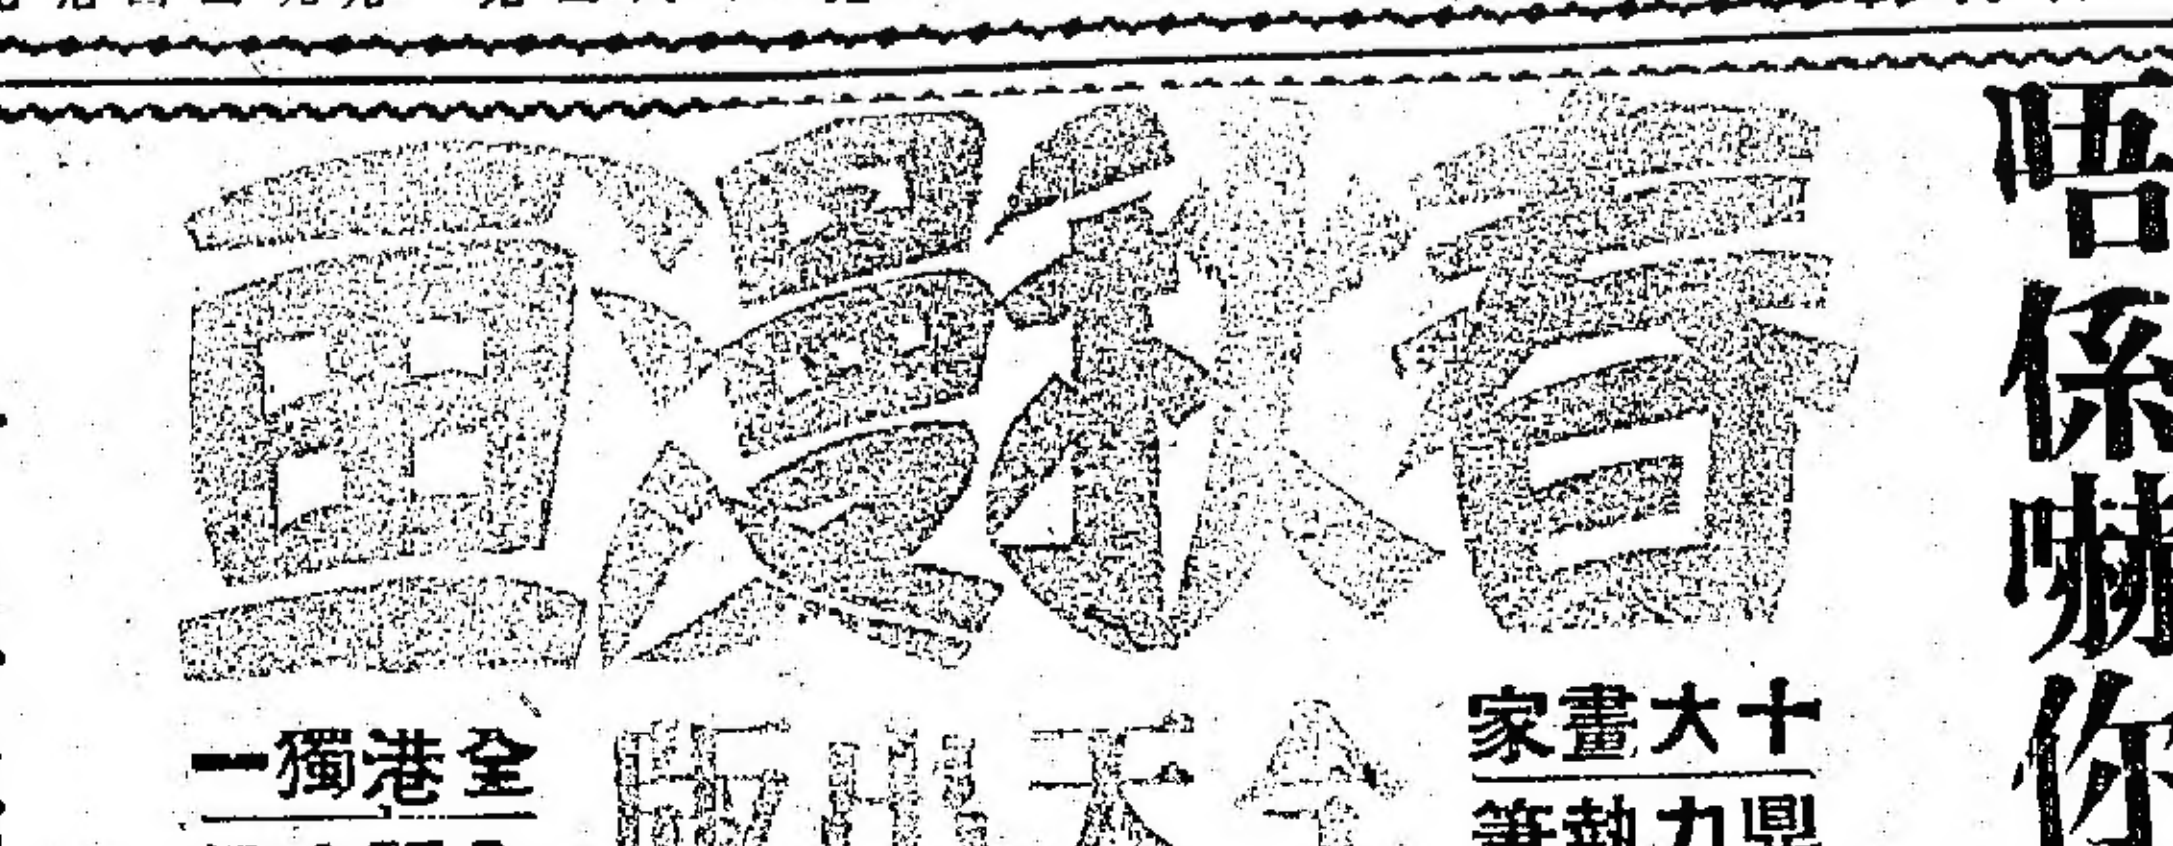 唔係嚇你
春秋漫画
十大畫家
鼎力執筆
今天出版
全港獨一